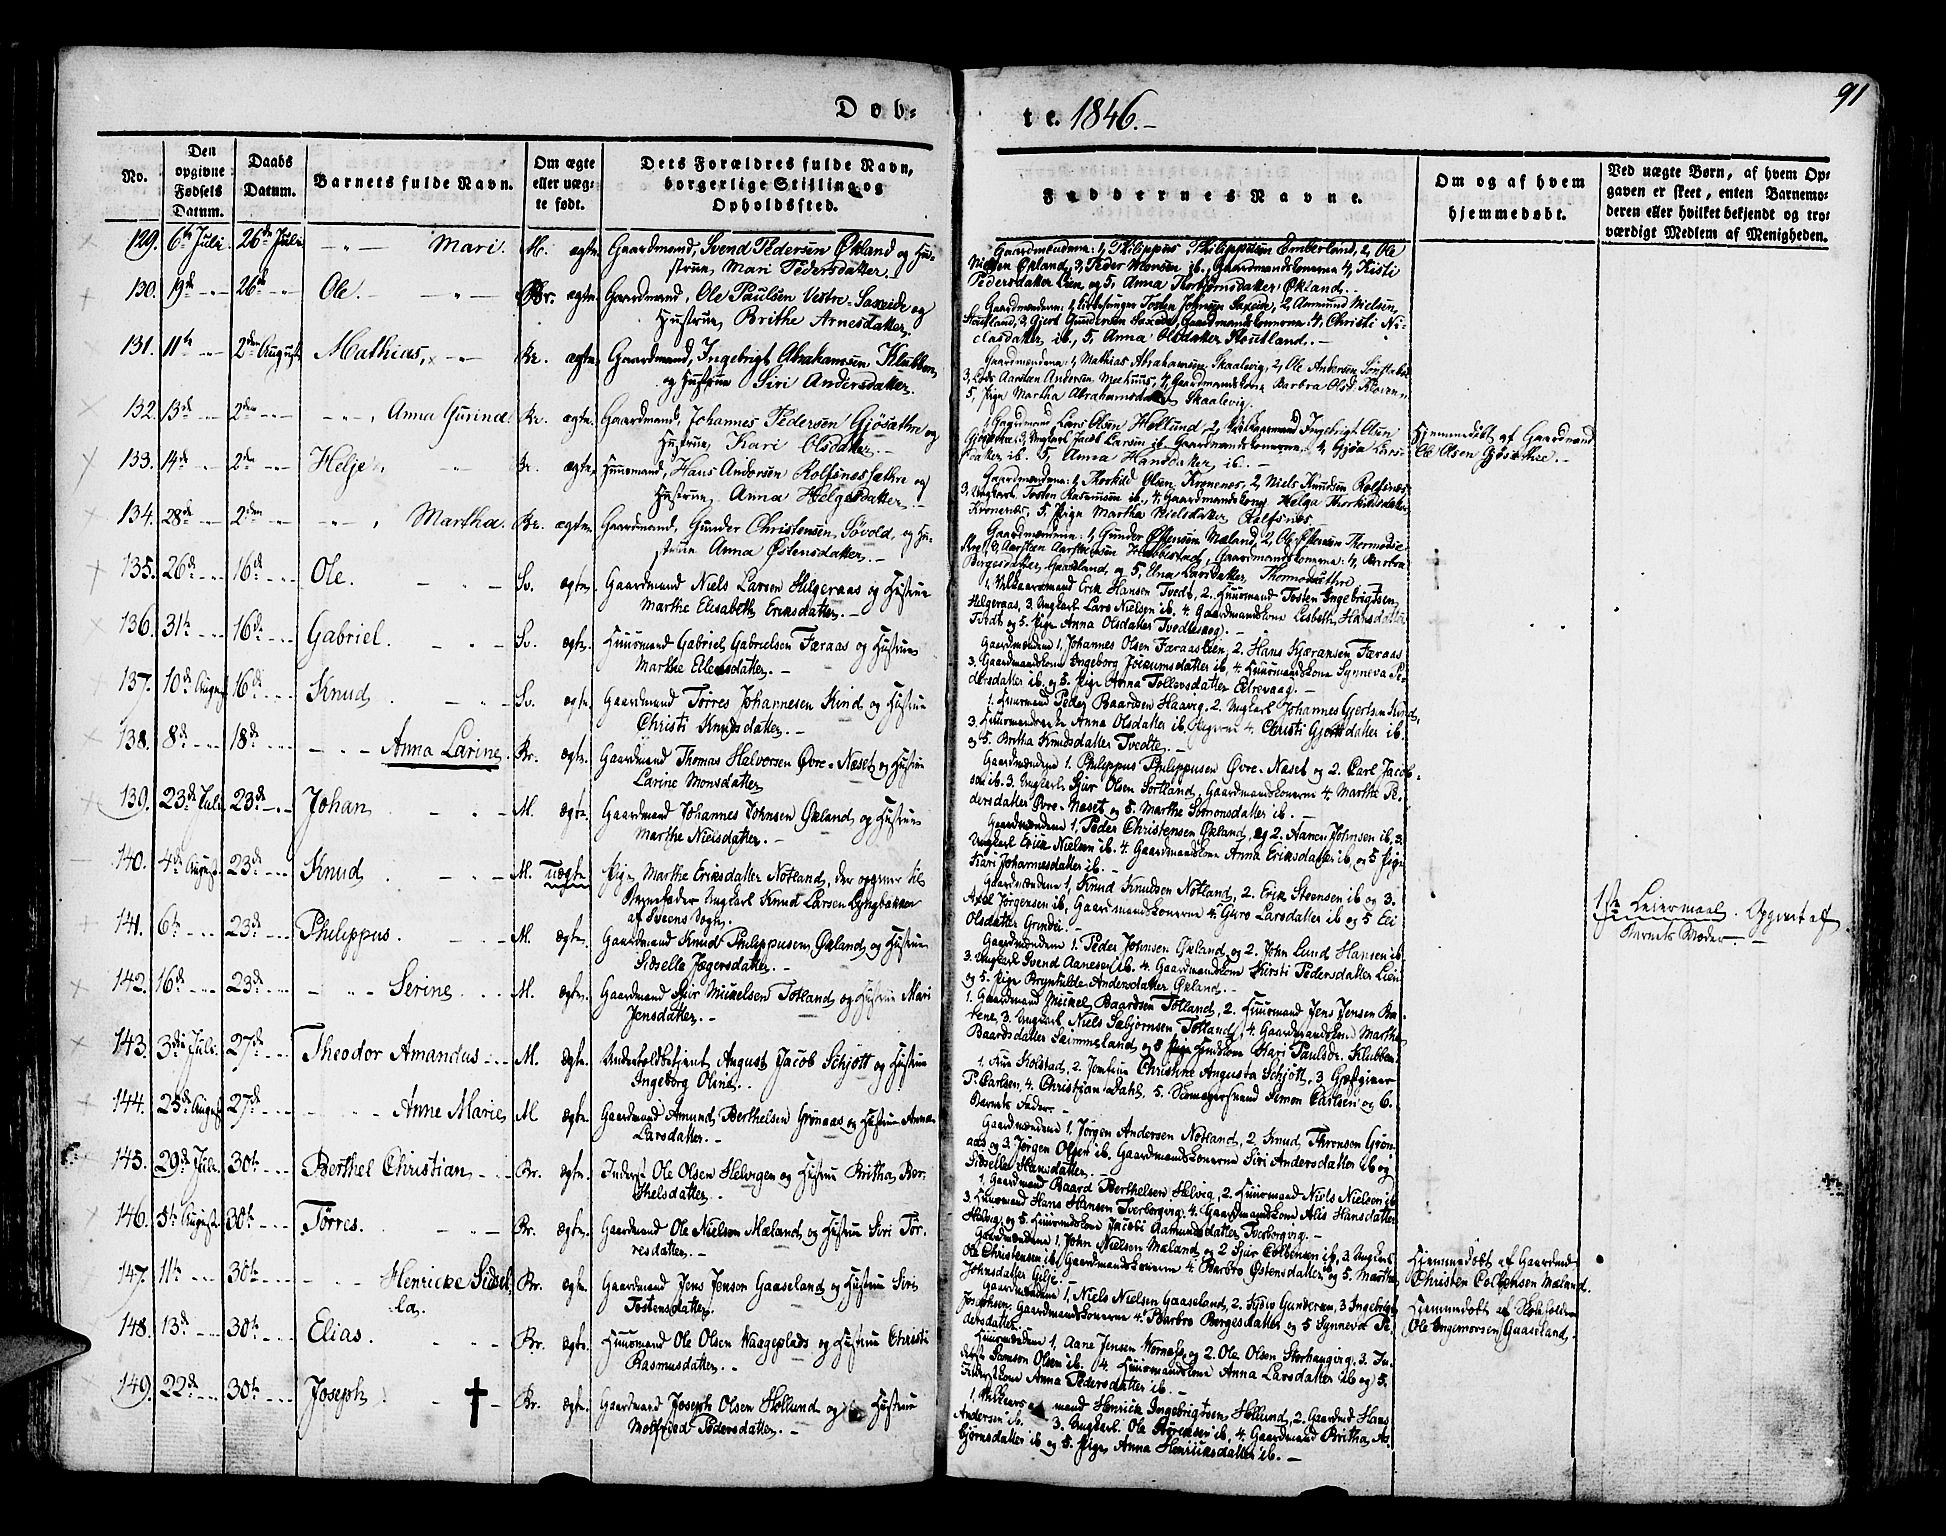 Døb-
te. 1846.-
91
No.
Den
opgivne
Fødsels
Datum.
Daabs
Datum.
Barnets fulde Navn.
Om ægte
eller uæg-
te født.
Dets Forældres fulde Navn,
borgerlige Stilling og
Opholdssted.
Faddernes Navne.
Om og af hvem
hjemmedøbt.
Ved uægte Børn, af hvem Op-
gaven er skeet, enten Barnemo-
deren eller hvilket bekjendt og tro-
værdigt Medlem af Menigheden.
129. 6te Juli 26de Juli - " - Mari. M. ægte. Gaardmand, Svend Pedersen Økland og Hu-
strue, Mari Pedersdatter. -
Gaardmændene: 1, Philippus Philippusen Emberland, 2, Ole
Nielsen Økland, 3, Peder ib., Gaardmandskonerne 4, Kisti
Pedersdatter Lien, og 5, Anna Thorbjørnsdatter Økland. -
130. 19de - 26de - Ole. - " - Br. ægte. Gaardmand, Ole Paulsen Vestre-Saxeide og
Hustrue, Brithe Arnesdatter,
Tosten Johnsen Saxeide, 2, Aamund Nielsen,
3, Gjert Gundersen Saxeide, Gaardmandskonerne 4, Christi Ni-
clasdatter, ib., 5, Anna Olsdatter
131. 11te - 2den August Mathias, - " - Br. ægte. Gaardmand, Ingebrigt Abrahamsen Klubben,
og Hustrue Siri Andersdatter.
Gaardmændene: 1, Mathias Abrahamsen, Skaalevig, 2, Ole Andersen
3, Aarstan Andersen Meehuus, 4, Gaardmandskone Barbra Olsd.
5, Pige Martha Abrahamsdatter Skaalevig.
132. 13de - 2den - - " - , Anna Gurina. Br. ægte. Gaardmand, Johannes Pedersen Gjøsæthre og
Hustrue, Kari Olsdatter. -
1, Gaardmand Lars Olsen Høllund, 2, Ingebrigt Olsen
Gjøsæthre, 3, Ungkarl Jacob Larsen ib., Gaardmandskonerne, 4, Gjøa Lars-
datter ib. 5, Anna Hansdatter, ib. -
Hjemmedøbt af Gaardmand
Ole Olsen Gjøsæthre. -
133. 14de - 2den - Helje - " - Br. ægte. Huusmand, Hans Andersen Rolfsnessæthre og
Hustrue, Anna Helgesdatter. -
Gaardmændene: 1, Thorkild Olsen Kronenes, 2, Niels Knudsen Rolfsnes,
3, Ungkarl, Tosten Rasmusen ib., 4, Gaardmandskone Helga Thorkildsdatter
Kronenes, 5, Pige Martha Nielsdatter, Rolfsnes.
134. 28de - 2den - - " - , Martha. Br. ægte. Gaardmand, Gunder Christensen, Søvold, og Hu-
strue Anna Østensdatter. -
Gaardmændene: 1, Gunder Østensen Mæland, 2, Ole
3, Aarstæen Aarstæensen Habbestad, Gaardmandskonerne: 4, Barbra
Børgesdatter, og 5, Elna Larsdatter,
135. 26de - 16de - Ole. - " - Sv. ægte. Gaardmand Niels Larsen Helgeraas og Hustrue
Marthe Elisabeth Eriksdatter. -
1, Erik Hansen Tvedt, 2. Huusmand Tosten Ingebrigtsen
Helgeraas, 3. Ungkarl Lars Nielsen ib, 4. Gaardmandskone Lisbeth Hansdatter
Tvedt og 5. Pige Anna Olsdatter
136. 31te - 16de - Gabriel. - " - Sv. ægte. Huusmand Gabriel Gabrielsen Færaas og Hustrue
Marthe Ellensdatter. -
Gaardmændene 1, Johannes Olsen 2. Hans Kjæransen Færaas
3. Gaardmandskone Ingeborg ib, 4. Huusmandskone Synneva Pe-
dersdatter ib. og 5. Pige Anna Tollevsdatter Eltrevaag. -
137. 10de August 16de - Knud - " - Sv. ægte. Gaardmand Tørres Johannesen Kind og Hustrue
Christi Knudsdatter. -
1. Huusmand Peder Baardsen Haavig, 2. Ungkarl Johannes Gjertsen Kind,
3. Anna Olsdatter ib. Pigerne 4. Christi Gjertsdatter ib.
og 5. Britha Knudsdatter Tvedte. -
138. 8de - 18de - - " - Anna Larine. Br. ægte. Gaardmand Thomas Halvorsen Øvre-Næset og Hustrue
Larine Monsdatter
Gaardmændene 1. Philippus Philippusen Øvre-Næset og 2. Carl Jacob-
sen ib. 3. Ungkarl Sjur Olsen Sortland, Gaardmandskonerne 4. Marthe Pe-
dersdatter Øvre-Næset og 5. Marthe Simonsdatter ib. -
139. 23de Juli 23de - Johan - " - M. ægte. Gaardmand Johannes Johnsen Økland og Hustrue
Marthe Nielsdatter. -
Gaardmændene 1, Peder Christensen Økland, og 2. Aanen Johnsen ib, 3.
Ungkarl Erik Nielsen ib. 4. Gaardmandskone Anna Eriksdatter ib, og 5 Pige
Kari Johannesdatter ib. -
140. 4de August 23de Knud - " - M. uægte Pige Marthe Eriksdatter Notland, der opgiver til
Barnefader Ungkarl Knud Larsen Lyngbakker
af Sveens Sogn.
Gaardmændene 1, Knud Knudsen Notland, 2. Erik Steensen ib og 3.
Axel Jørgensen ib, Gaardmandskonerne 4. Guro Larsdatter ib og 5
Olsdatter Grindei. -
1ste Leiermaal. Opgivet af
Barnets Moder. -
141. 6te - 23de - Philippus. - " - M. ægte. Gaardmand Knud Philippusen Økland og Hustrue
Sidselle Jægersdatter. -
Gaardmændene 1. Peder Johnsen Økland og 2. John Lund Hansen ib
3. Ungkarl Svend Aanesen ib. 4. Gaardmandskone Kirsti Pedersdatter Lien
og 5. Pige Brynhilde Andersdatter Økland. -
142. 16de - 23de - - " - Serine. M. ægte. Gaardmand Sjur Mickelsen Totland og Hustrue Mari
Jensdatter. -
1. Gaardmand Mickel Baardsen Totland, 2. Huusmand Jens Jensen
3. Ungkarl Niels Sæbjørnsen Totland, 4. Gaardmandskone Martha
Baardsdatter og 5 Pige Kari Paulsdr. Klubben.
143. 3die Juli 27de - Theodor Amandus - M. ægte. Underfoldbetjent August Jacob Schjøtt og Hustrue
Ingeborg Oline. -
1, Kolstad, 2, Jomfrue Christine Augusta Schjøtt, 3, Gjæstgiver
P. Carlsen, 4. Christian Dahl, 5. Simon Carlsen og 6.
Barnets Fader. -
144. 25de August 27de - - " - Anne Marie, M ægte. Gaardmand Amund Berthelsen Grønaas og Hustrue Anna
Larsdatter. -
Gaardmændene 1, Jørgen Andersen Notland, 2. Knud Grøn-
aas og 3. Jørgen Olsen ib. Gaardmandskonerne Siri Andersdatter ib og
Sidselle Hansdatter. -
145. 29de Juli 30te - Berthel Christian - Br. ægte. Inderst Ole Olsen Helvigen og Hustrue Britha Ber-
thelsdatter. -
1, Gaardmand Baard Berthelsen Helvig, 2, Huusmand Niels Nielsen ib
3. Huusmand Hans Hansen Tverborgvig. 4. Gaardmandskone Alis Hansdatter
Helvig, og 5. Jacobi Aamundsdatter, Tverborgvig. -
146. 5te August 30te - Tørres. - " - Br. ægte. Gaardmand Ole Nielsen Mæland og Hustrue Siri Tør-
resdatter. -
Gaardmændene 1, John Nielsen Mæland og 2 Sjur Colbensen ib, 3. Ungkarl
Ole Christensen ib, Gaardmandskonerne 4. Barbro Østensdatter ib og 5. Martha
Johnsdatter Gilje. -
Hjemmedøbt af Gaardmd.
Christen Colbensen Mæland.
147. 11te - 30te - - " - Henricke Sidsel-
la, Br. ægte. Gaardmand Jens Jensen Gaaseland og Hustrue Siri
Tostensdatter.
Gaardmændene 1, Niels Nielsen Gaaseland, 2. Gundersen, 3 Ingebrigt
Josephsen, Gaardmandskonerne 4. Barbro Børgesdatter og 5 Synneva Pe-
dersdatter.
Hjemmedøbt af
Ole Ingemorsen Gaaseland.
148. 13de - 30te - Elias. - " - Br. ægte. Huusmand Ole Olsen Waageplads og Hustrue Christi
Rasmusdatter. -
Huusmændene 1. Aane Jensen og 2. Ole Olsen Storhaugvig, 3. In-
derst Samson Olsen ib. 4 Huusmandskone Anna Larsdatter ib og 5.
Anna Pedersdatter ib. -
149. 22de - 30te - Joseph, † - Br. ægte. Gaardmand Joseph Olsen Hollund og Hustrue
Pedersdatter. -
1, mand Henrik Ingebrigtsen Hollund, 2. Gaardmd Hans
Andersen ib. 3. Ungkarl Ole ib, 4. Gaardmand Britha As-
bjørnsdatter ib og 5. Pige Anna Henriksdatter ib. -